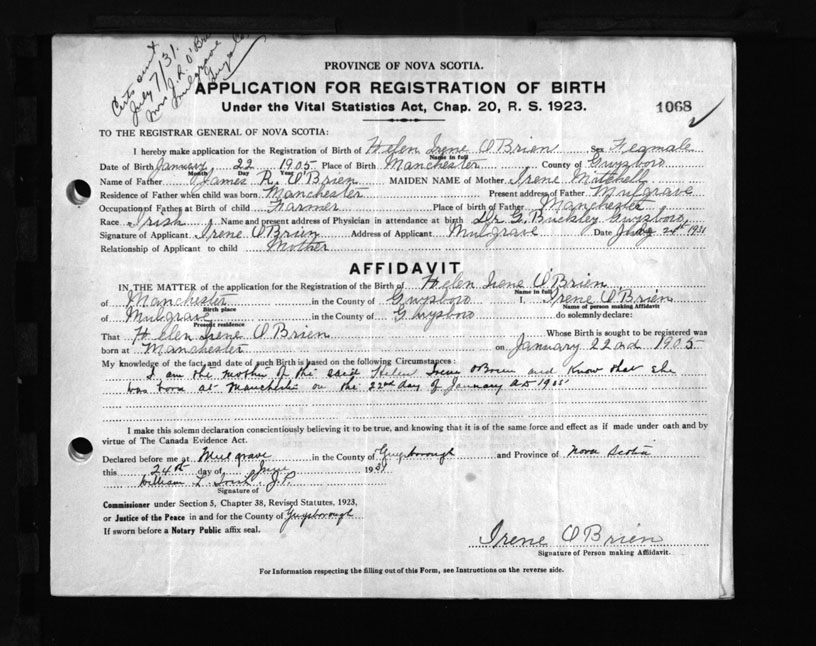 Certs sent
July 7/31.
Mrs J. R. O'Brien
Mulgrave
Guys Co.
PROVINCE OF NOVA SCOTIA.
APPLICATION FOR REGISTRATION OF BIRTH
Under the Vital Statistics Act, Chap. 20, R. S. 1923.
1068 ✓
TO THE REGISTRAR GENERAL OF NOVA SCOTIA:
I hereby make application for the Registration of Birth of Helen Irene O'Brien Sex Fegmale
Name in full
Date of Birth January 22 1905 Place of Birth Manchester County of Guysboro
Month Day Year
Name of Father James R. O'Brien MAIDEN NAME of Mother Irene Mitchell
Residence of Father when child was born Manchester Present address of Father Mulgrave
Occupation of Father at Birth of child Farmer Place of birth of Father Manchester
Race Irish Name and present address of Physician in attendance at birth Dr G. Buckley Guysboro
Signature of Applicant Irene O'Brien Address of Applicant Mulgrave Date 24th 1931
Relationship of Applicant to child Mother
AFFIDAVIT
IN THE MATTER of the application for the Registration of the Birth of Helen Irene O'Brien
Name in full
of Manchester in the County of Guysboro I, Irene O'Brien
Birth place Name of person making Affidavit
of Mulgrave in the County of Guysboro do solemnly declare:
Present residence
That Helen Irene O'Brien Whose Birth is sought to be registered was
born at Manchester on January 22nd 1905
My knowledge of the fact and date of such Birth is based on the following Circumstances:
I am the mother of the said Helen Irene O'Brien and know that she
was born at Manchester on the 22nd day of January A D 1905
I make this solemn declaration conscientiously believing it to be true, and knowing that it is of the same force and effect as if made under oath and by
virtue of The Canada Evidence Act.
Declared before me at Mulgrave in the County of Guysborough and Province of Nova Scotia
this 24th day of June 1931
William L. J.P.
Signature of
Commissioner under Section 5, Chapter 38, Revised Statutes, 1923,
or Justice of the Peace in and for the County of Guysborough
If sworn before a Notary Public affix seal.
Irene O'Brien
Signature of Person making Affidavit.
For Information respecting the filling out of this Form, see Instructions on the reverse side.